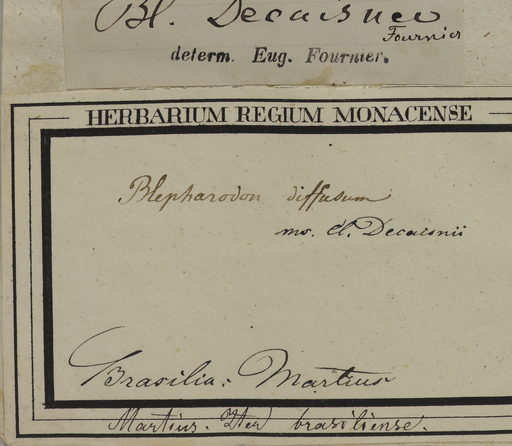 Bl. Decaisnei
Fournier
determ. Eug. Fournier.
HERBARIUM REGIUM MONACENSE
Blepharodon diffusum
ms. cl. Decaisnii
Brasilia. Martius
Martius. Iter brasiliense.